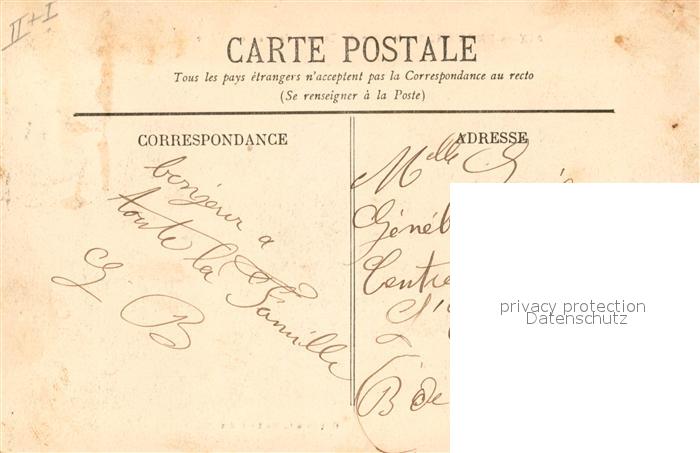 II+I
CARTE POSTALE
Tous les pays étrangers n'acceptent pas la Correspondance au recto
(Se renseigner à la Poste)
CORRESPONDANCE
bonjour a
toute la Famille
G. B
ADRESSE
Mlle G
Généb
Centre
privacy protection
Datenschutz
B de